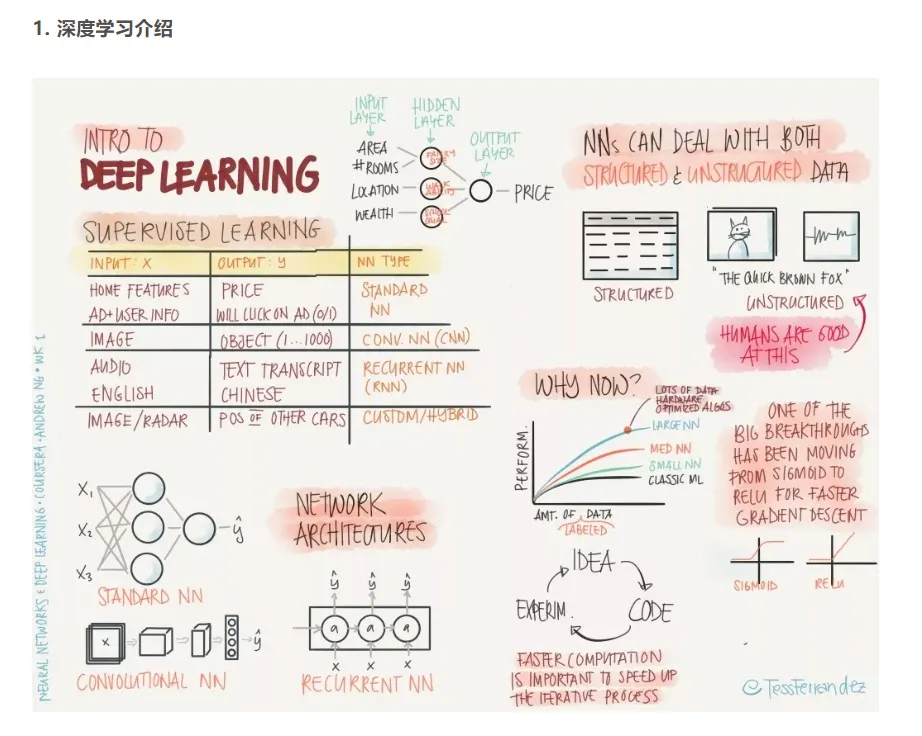 1. 深度学习介绍
INTRO TO
DEEP LEARNING
INPUT
LAYER
HIDDEN
LAYER
OUTPUT
LAYER
AREA
#ROOMS
LOCATION
WEALTH
FAMILY
SIZE
WALK
ABILITY
SCHOOL
QUAL
PRICE
SUPERVISED LEARNING
INPUT: X OUTPUT: y NN TYPE
HOME FEATURES PRICE STANDARD
AD+USER INFO WILL CLICK ON AD (0/1) NN
IMAGE OBJECT (1...1000) CONV. NN (CNN)
AUDIO TEXT TRANSCRIPT RECURRENT NN
ENGLISH CHINESE (RNN)
IMAGE/RADAR POS OF OTHER CARS CUSTOM/HYBRID
X1
X2
X3
ŷ
STANDARD NN
X
ŷ
CONVOLUTIONAL NN
NETWORK
ARCHITECTURES
ŷ ŷ ŷ
a a a
X X X
RECURRENT NN
NNs CAN DEAL WITH BOTH
STRUCTURED & UNSTRUCTURED DATA
STRUCTURED
"THE QUICK BROWN FOX"
UNSTRUCTURED
HUMANS ARE GOOD
AT THIS
WHY NOW?
LOTS OF DATA
HARDWARE
OPTIMIZED ALGOS
LARGE NN
MED NN
SMALL NN
CLASSIC ML
PERFORM.
AMT. OF DATA
LABELED
IDEA
EXPERIM.
CODE
FASTER COMPUTATION
IS IMPORTANT TO SPEED UP
THE ITERATIVE PROCESS
ONE OF THE
BIG BREAKTHROUGHS
HAS BEEN MOVING
FROM SIGMOID TO
RELU FOR FASTER
GRADIENT DESCENT
SIGMOID
RELU
@TessFerrandez
NEURAL NETWORKS & DEEP LEARNING · COURSERA · ANDREW NG · WK 1